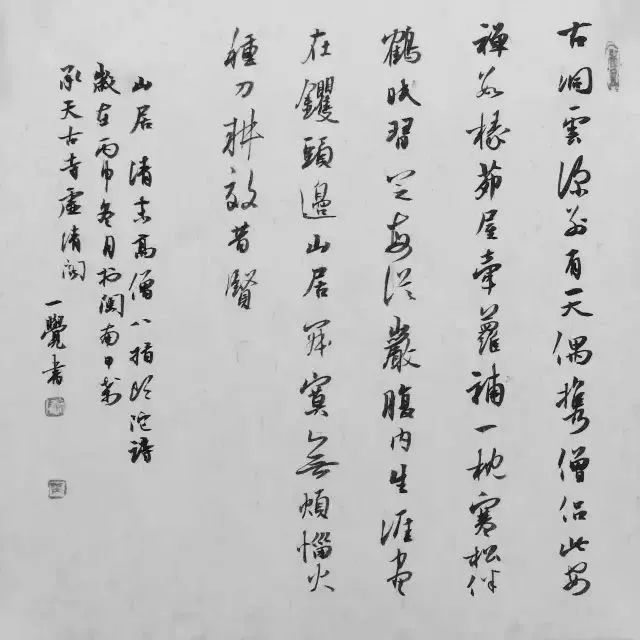 古洞雲深別有天偶攜僧侶此安
禪數椽茆屋牽蘿補一枕寒松伴
鶴眠習定每從巖腹內生涯盡
在钁頭邊山居寂寞無煩惱火
種刀耕效昔賢
山居清末高僧八指頭陀詩
歲在丙申冬月於閩南
承天古寺虛清閣
一覺書